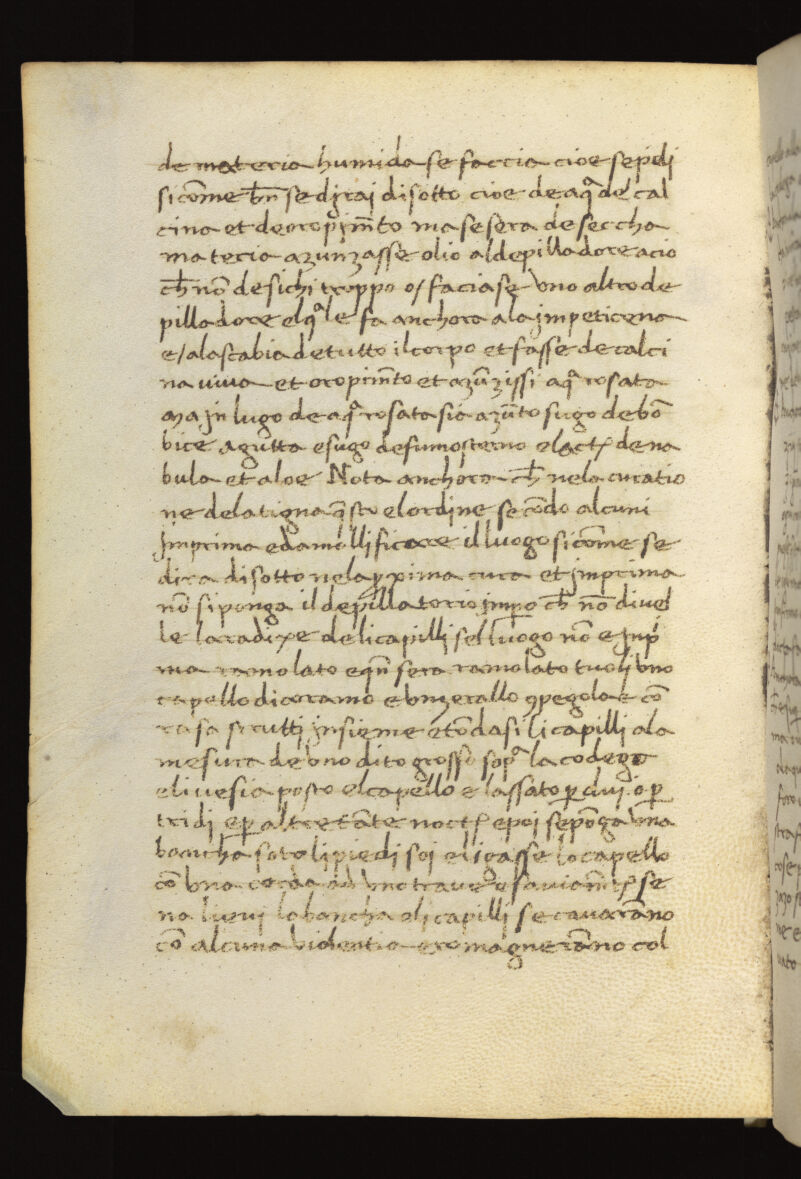 de materia humida se faccia cioe se pidi
si cōme bn̄ se dj̄rai di sotto cioe de aq̄a de cal
cina et de oropim̄to ma se sera de seccha
materia azunzasse olio al depilladore acio
ch̄ nō desichi troppo o/ faciase vno altro de
pilladore el q̄ale fa anchora ala jmpeticena
e/ ala scabia de tutto il corpo et fasse de calci
na viva et oropim̄to et azūzissi aq̄a rosata
Ma jn lugo de aq̄a rosata sia azūto sugo de bō
bice agutta e sugo de fumosterno e lact de na
bula et aloe Nota anchora ch̄ nela curatio
ne dela tigna q̄sto el ordine secōdo alcuni
Jmprima e da mollificare il luogo si cōme se
dira di sotto nela p̱xima cura et jmprima
nō si ponga il depillatorio jmp̱o ch̄ nō divel
le la radixe deli capilli se l luogo nō e jmp̄
ma ramolato e qn̄ sera ramolato tuoli vno
capello di coramo e vnzerallo 9 pegola e cō
rasa strutti jnsieme e tōdasi li capilli ala
mesura de vno dito grosso sop̄a la codega
e li ve sia posto el capello e lassato p̱ duj o p̱
tri di e p̱ altretāte noct e poi se pōga vna
bancha soto li piedi soi e ligasse lo capello
cō vna corda ad vno trave e saviam̄t se
na lievi la bancha e li capilli se cavarāno
cō alcuna violentia e romagnerāno col